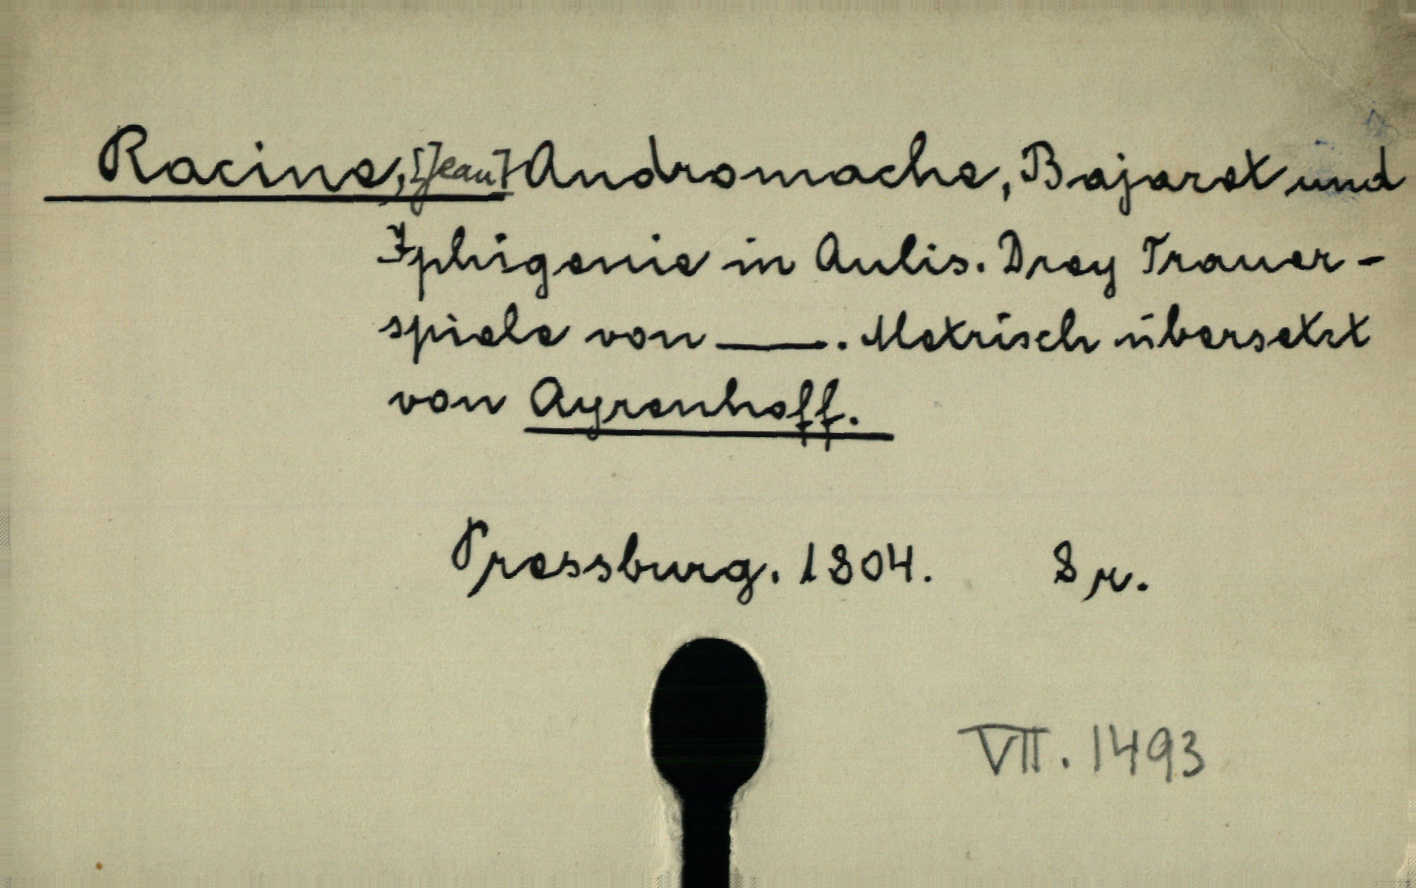 Racine, [Jean] Andromache, Bajazet und
Iphigenie in Aulis. Drey Trauer-
spiele von ____. Metrisch übersetzt
von Ayrenhoff.
Pressburg. 1804. 8 r.
VII. 1493